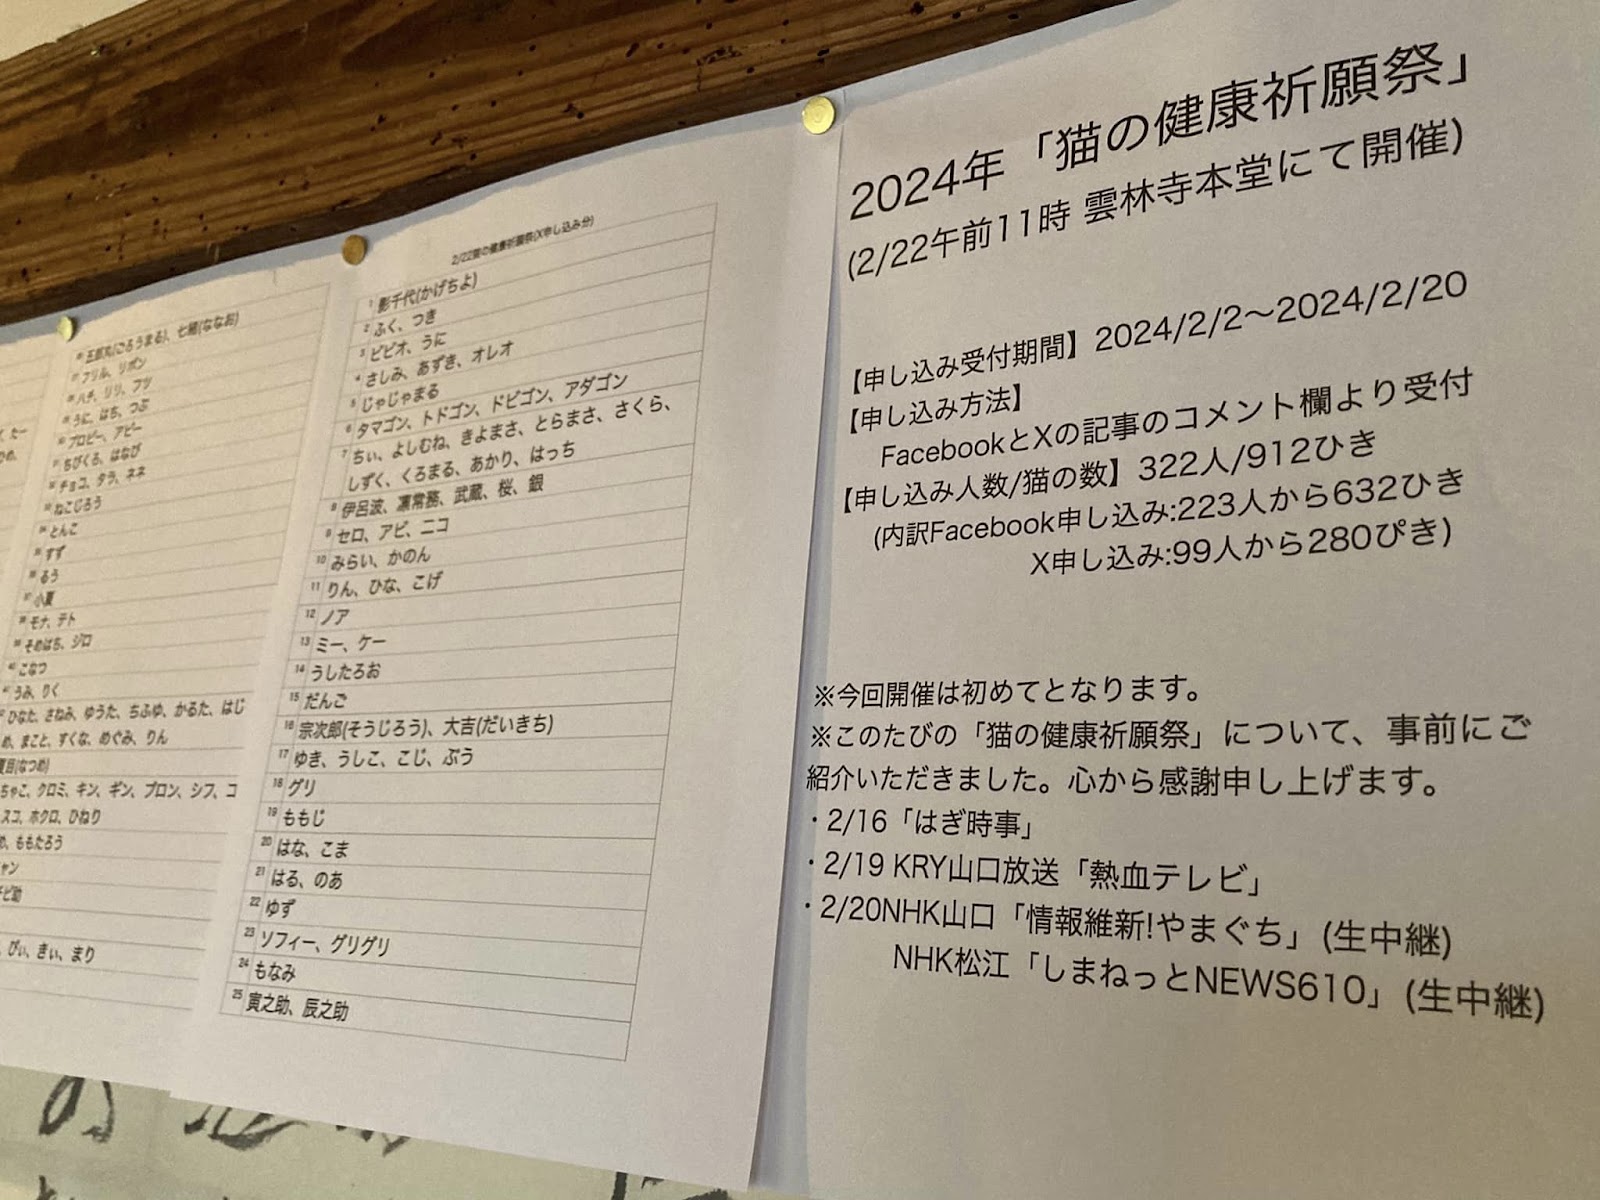 2024年「猫の健康祈願祭」
(2/22午前11時 雲林寺本堂にて開催)
【申し込み受付期間】2024/2/2～2024/2/20
【申し込み方法】
FacebookとXの記事のコメント欄より受付
【申し込み人数/猫の数】322人/912ひき
(内訳Facebook申し込み:223人から632ひき
X申し込み:99人から280ぴき)
※今回開催は初めてとなります。
※このたびの「猫の健康祈願祭」について、事前にご
紹介いただきました。心から感謝申し上げます。
・2/16「はぎ時事」
・2/19 KRY山口放送「熱血テレビ」
・2/20NHK山口「情報維新!やまぐち」(生中継)
NHK松江「しまねっとNEWS610」(生中継)
2/22猫の健康祈願祭(X申し込み分)
1 影千代(かげちよ)
2 ふく、つき
3 ビビオ、うに
4 さしみ、あずき、オレオ
5 じゃじゃまる
6 タマゴン、トドゴン、ドビゴン、アダゴン
7 ちぃ、よしむね、きよまさ、とらまさ、さくら、
しずく、くろまる、あかり、はっち
8 伊呂波、凛常務、武蔵、桜、銀
9 セロ、アビ、ニコ
10 みらい、かのん
11 りん、ひな、こげ
12 ノア
13 ミー、ケー
14 うしたろお
15 だんご
16 宗次郎(そうじろう)、大吉(だいきち)
17 ゆき、うしこ、こじ、ぶう
18 グリ
19 ももじ
20 はな、こま
21 はる、のあ
22 ゆず
23 ソフィー、グリグリ
24 もなみ
25 寅之助、辰之助
五郎丸(ごろうまる)、七緒(ななお)
フリル、リボン
ハチ、リリ、フツ
うに、はち、つぶ
プロピー、アピー
ちびくろ、はなび
チョコ、タラ、ネネ
ねこじろう
とんこ
すず
るう
小夏
モナ、テト
そめはち、ジロ
こなつ
うみ、りく
ひなた、さねみ、ゆうた、ちふゆ、かるた、はじ
め、まこと、すくな、めぐみ、りん
夏目(なつめ)
ちゃこ、クロミ、キン、ギン、ブロン、シフ、コ
スコ、ホクロ、ひねり
ももたろう
ャン
チビ助
ぴぃ、きぃ、まり